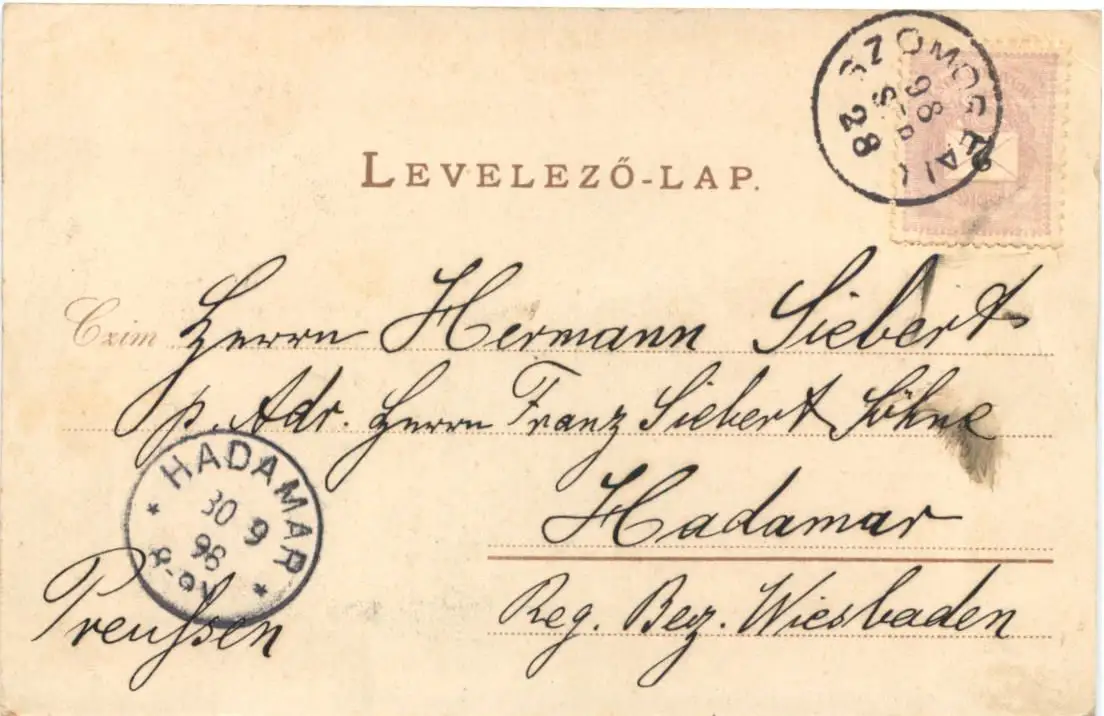 LEVELEZŐ-LAP.
98
SEP
28
Czim Herrn Hermann Siebert
p. Adr. Herrn Franz Siebert Söhne
Hadamar
Reg. Bez. Wiesbaden
Preußen
HADAMAR
30 9
98
8-9V